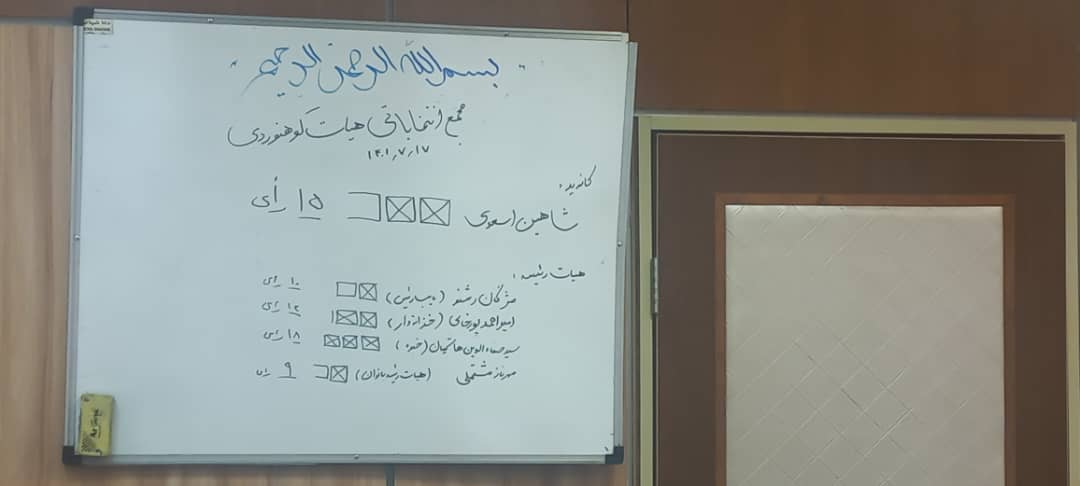 بسم الله الرحمن الرحیم
مجمع انتخاباتی هیات کوهنوردی
۱۴۰۱٫۷٫۱۷
کاندید:
شاهین اسعدی ۱۵ رأی
هیات رئیسه:
مژگان رشنو (نایب رئیس) ۱۰ رأی
امیراحمد (خزانه‌دار) ۱۲ رأی
سید ۱۸ رأی
مهرناز مشتملی (هیات رئیسه بانوان) ۹ رای